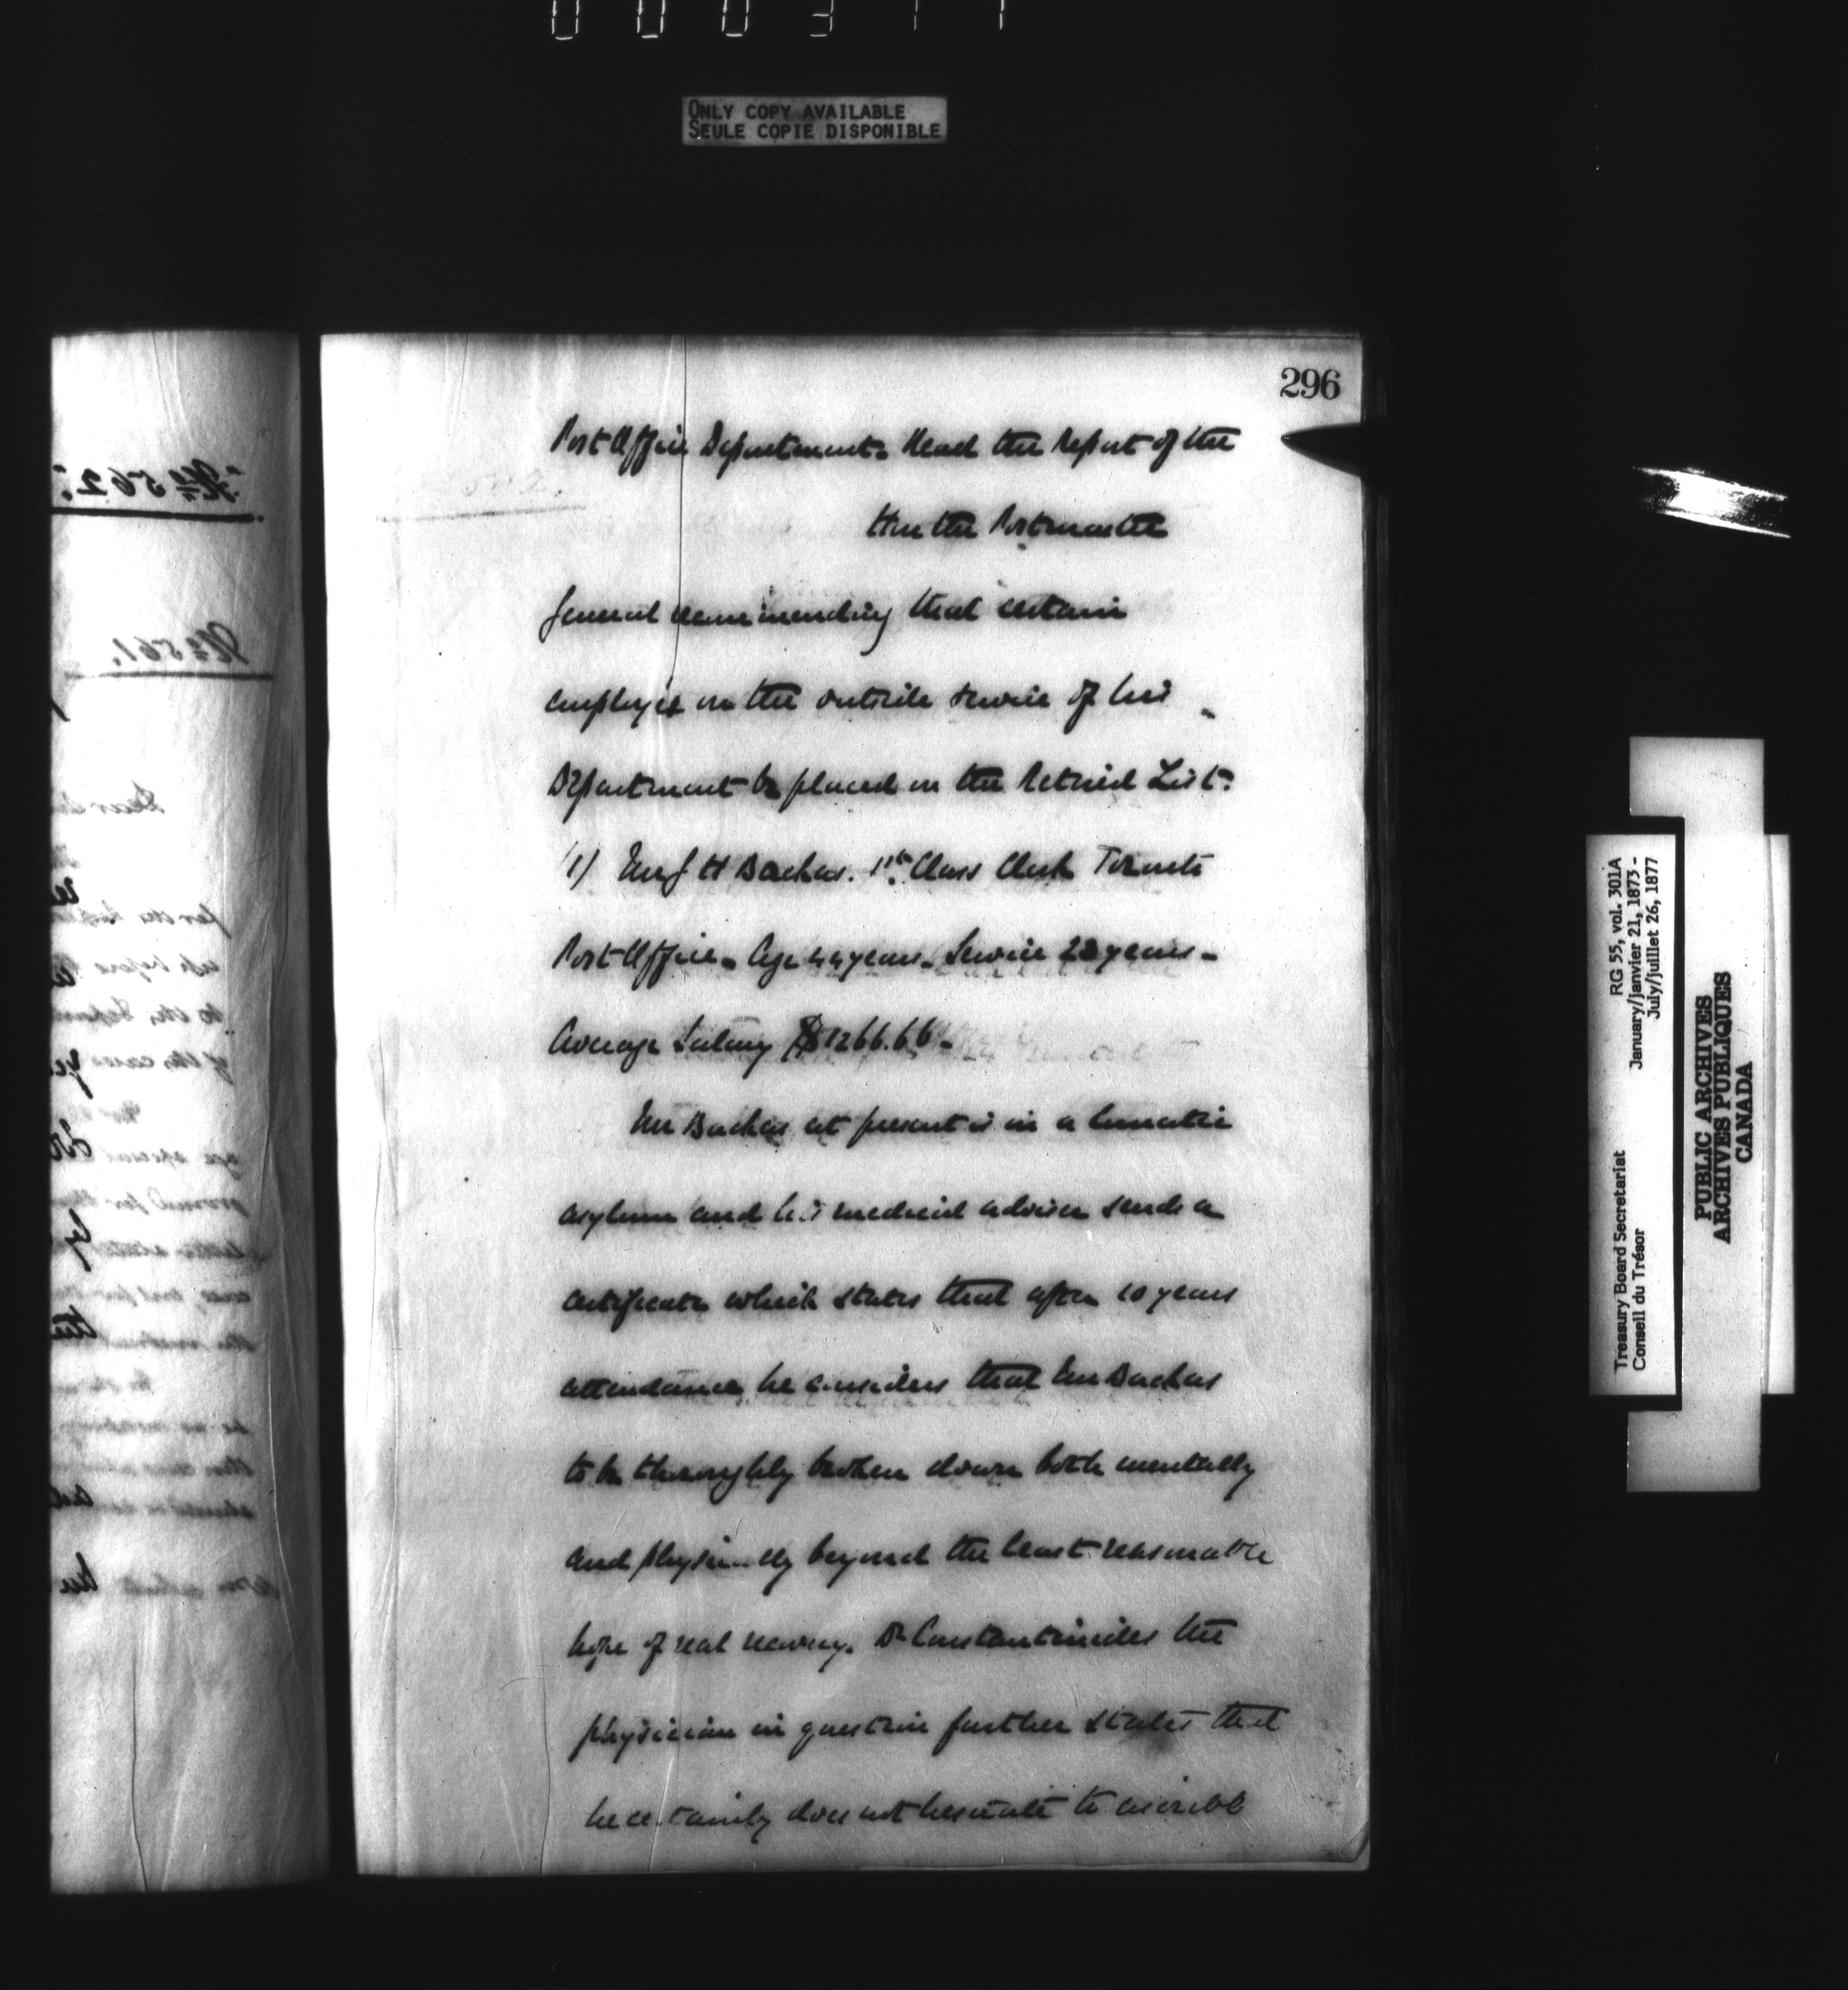 ONLY COPY AVAILABLE
SEULE COPIE DISPONIBLE
296
Post Office Department. Read the Report of the
Hon the Postmaster
General recommending that certain
employés on the outside service of his
Department be placed on the Retired List.
(1) Mr J H Backas. 1st Class Clerk Toronto
Post Office. Age 44 years. Service 22 years.
Average Salary $1266.66.
Mr Backas at present is in a lunatic
asylum and his medical adviser sends a
certificate which states that after 10 years
attendance he considers that Mr Backas
to be thoroughly broken down both mentally
and physically beyond the least reasonable
hope of real recovery. Dr Constantinides the
physician in question further states that
he certainly does not hesitate to ascribe
No 562.
No 561.
Treasury Board Secretariat RG 55, vol. 301A
Conseil du Trésor January/janvier 21, 1873 -
July/juillet 26, 1877
PUBLIC ARCHIVES
ARCHIVES PUBLIQUES
CANADA